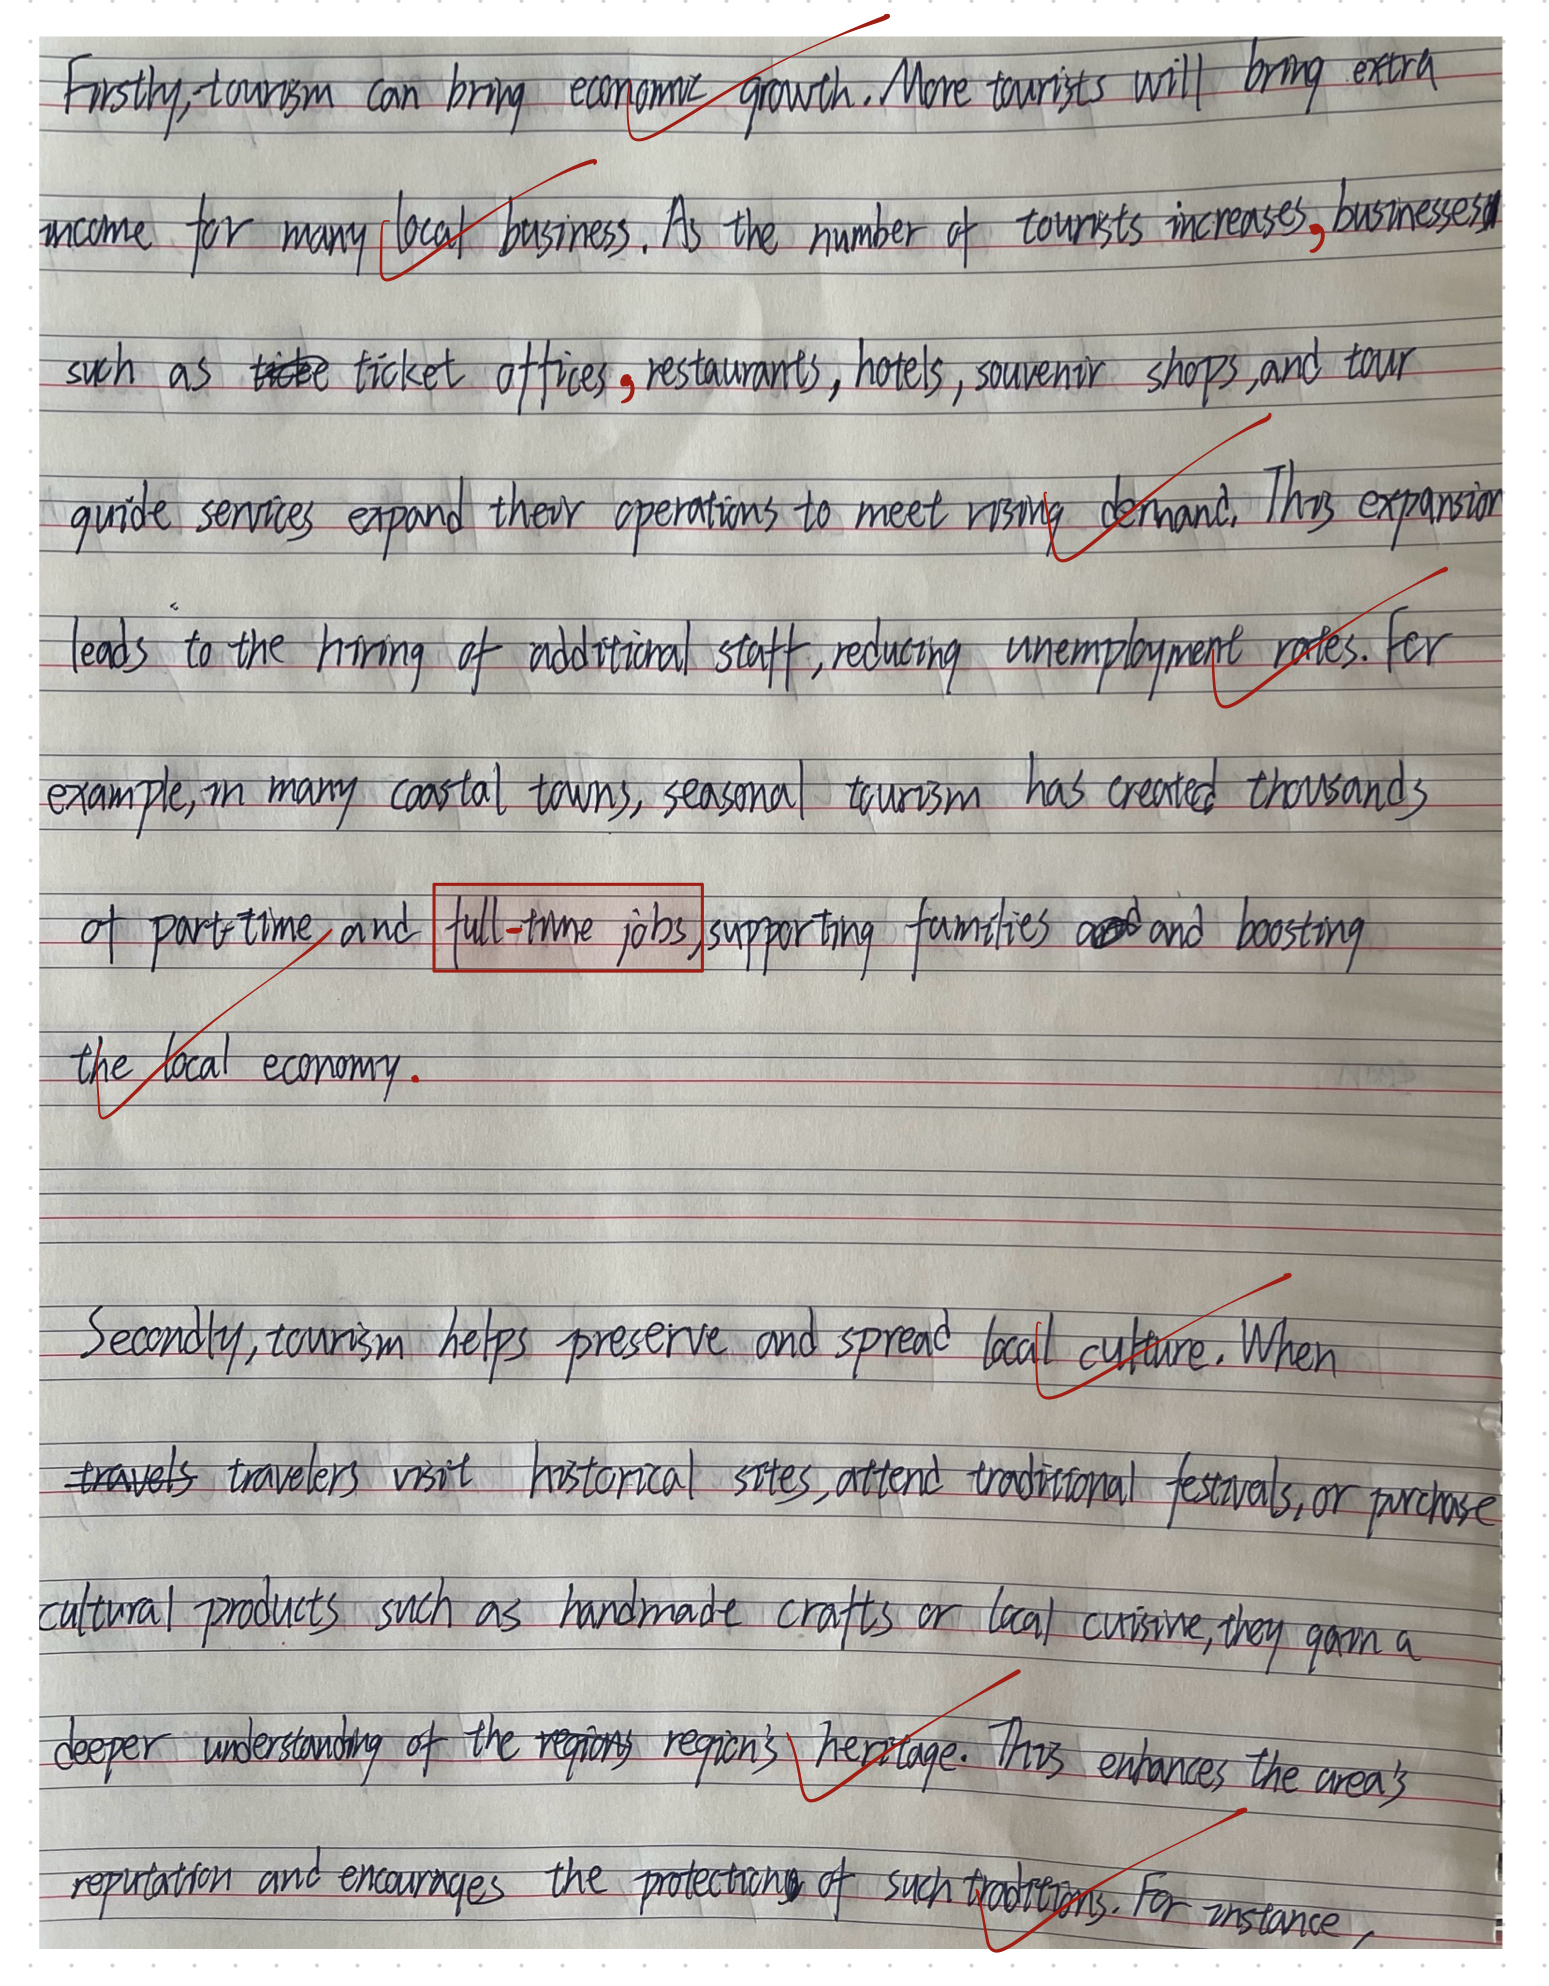 Firstly, tourism can bring economic growth. More tourists will bring extra
income for many local business. As the number of tourists increases, businesses
such as ticket offices, restaurants, hotels, souvenir shops, and tour
guide services expand their operations to meet rising demand. This expansion
leads to the hiring of additional staff, reducing unemployment rates. For
example, in many coastal towns, seasonal tourism has created thousands
of part-time and full-time jobs, supporting families and boosting
the local economy.
Secondly, tourism helps preserve and spread local culture. When
travels travelers visit historical sites, attend traditional festivals, or purchase
cultural products such as handmade crafts or local cuisine, they gain a
deeper understanding of the regions region's heritage. This enhances the area's
reputation and encourages the protection of such traditions. For instance,